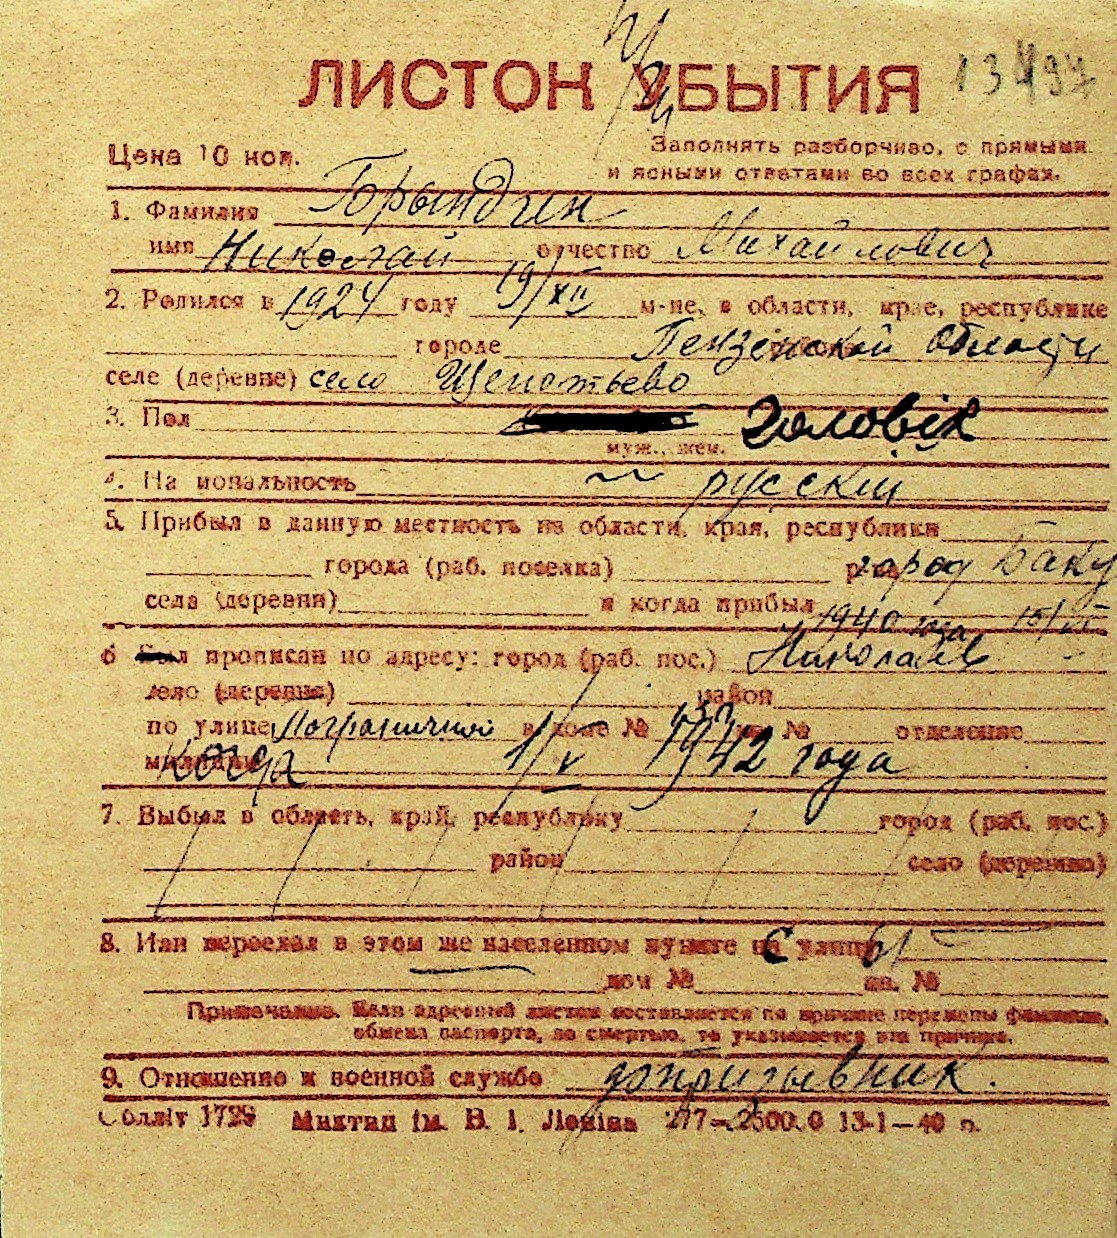 ЛИСТОК УБЫТИЯ
Цена 10 коп.
Заполнять разборчиво, с прямыми
и ясными ответами во всех графах.
1. Фамилия Горындин
имя Николай отчество Михайлович
2. Родился в 1924 году 19/XII м-це, в области, крае, республике
городе Пензенской области
селе (деревне) село Щепотьево
3. Пол чоловік
муж., жен.
4. Национальность русский
5. Прибыл в данную местность из области, края, республики
города (раб. поселка) город Баку
села (деревни) и когда прибыл 1940 года
6 Был прописан по адресу: город (раб. пос.) Николаев
село (деревня) район
по улице Пограничной в доме № кв. № отделение
милиции Когда 1/V 1942 года
7. Выбыл в область, край, республику город (раб. пос.)
район село (деревня)
8. Или переехал в этом же населенном пункте на улицу
дом № кв. №
Примечание. Если адресный листок составляется по причине перемены фамилии,
обмена паспорта, за смертью, то указывается эта причина.
9. Отношение к военной службе допризывник.
Обліт 1729 Миктип ім. В. І. Леніна 13-1—40 р.